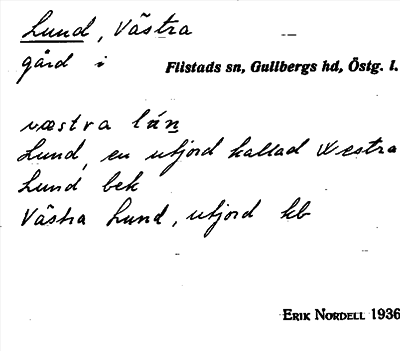 Lund, Västra
gård i Flistads sn, Gullbergs hd, Östg. l.
væstra lán
Lund, en utjord kallad Westra
Lund bek
Västra Lund, utjord kb
ERIK NORDELL 1936